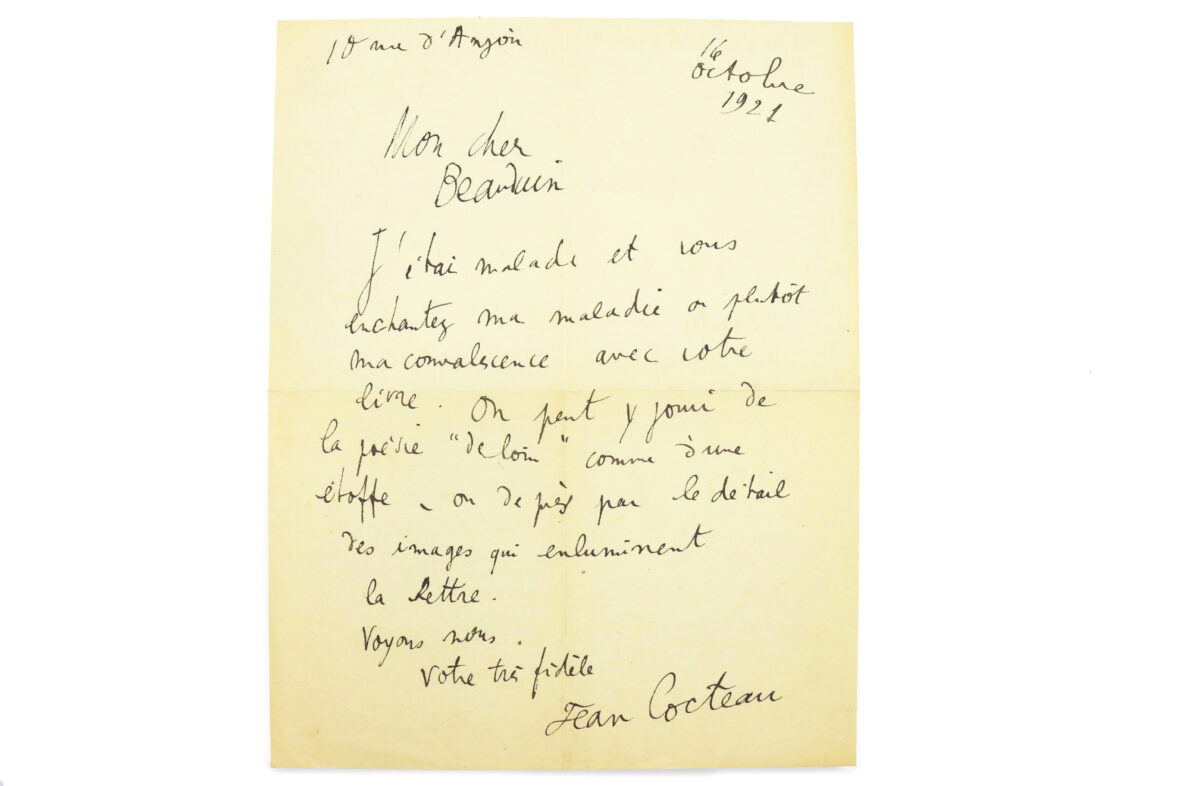 10 rue d'Anjou
16
octobre
1921
Mon cher
Beauduin
J'étai malade et vous
enchantez ma maladie ou plutôt
ma convalescence avec votre
livre. On peut y jouir de
la poésie "de loin" comme d'une
étoffe - ou de près par le détail
des images qui enluminent
la lettre.
Voyons nous.
Votre très fidèle
Jean Cocteau